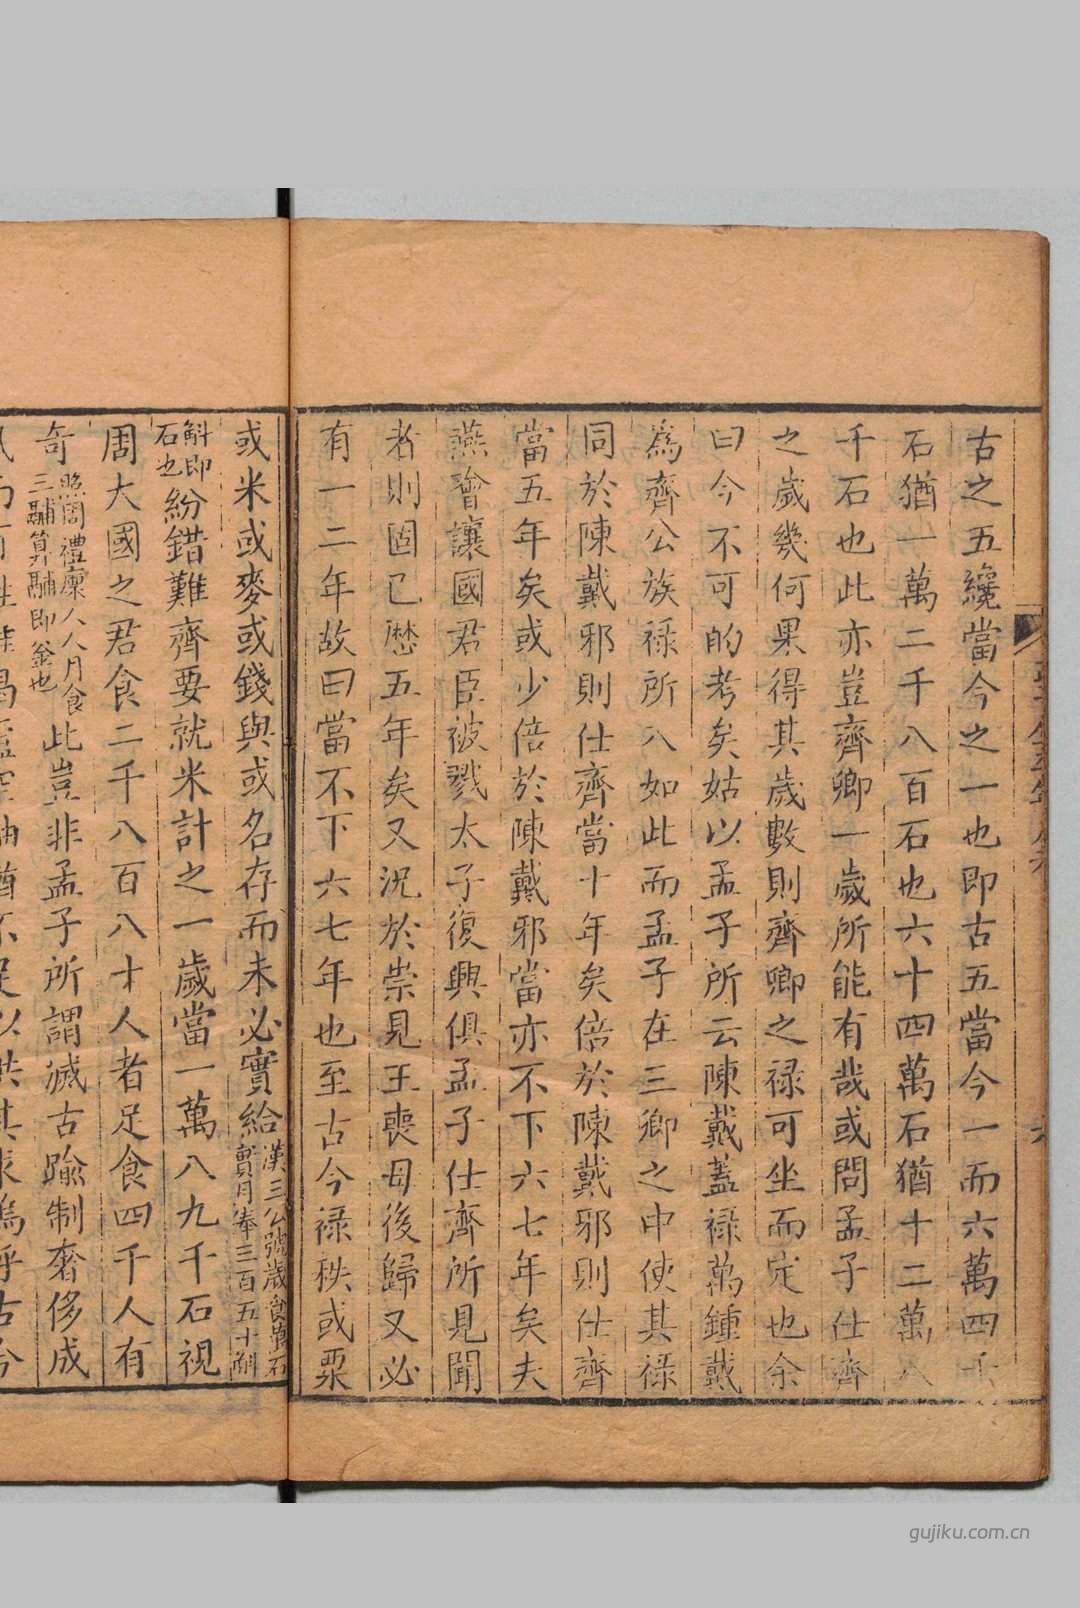 古之五纔當今之一也即古五當今一而六萬四千
石猶一萬二千八百石也六十四萬石猶十二萬八
千石也此亦豈齊卿一歲所能有哉或問孟子仕齊
之歲幾何果得其歲數則齊卿之祿可坐而定也余
曰今不可的考矣姑以孟子所云陳戴蓋祿萬鍾戴
為齊公族祿所入如此而孟子在三卿之中使其祿
同於陳戴邪則仕齊當十年矣倍於陳戴邪則仕齊
當五年矣或少倍於陳戴邪當亦不下六七年矣夫
燕噲讓國君臣被戮太子復興俱孟子仕齊所見聞
者則固已歷五年矣又況於崇見王喪母後歸又必
有一二年故曰當不下六七年也至古今祿秩或粟
或米或麥或錢與或名存而未必實給漢三公號歲食萬石
實月奉三百五十斛
斛即
石也紛錯難齊要就米計之一歲當一萬八九千石視
周大國之君食二千八百八十人者足食四千人有
奇照周禮廩人人月食
三鬴算鬴即釜也此豈非孟子所謂滅古踰制奢侈成
gujiku.com.cn